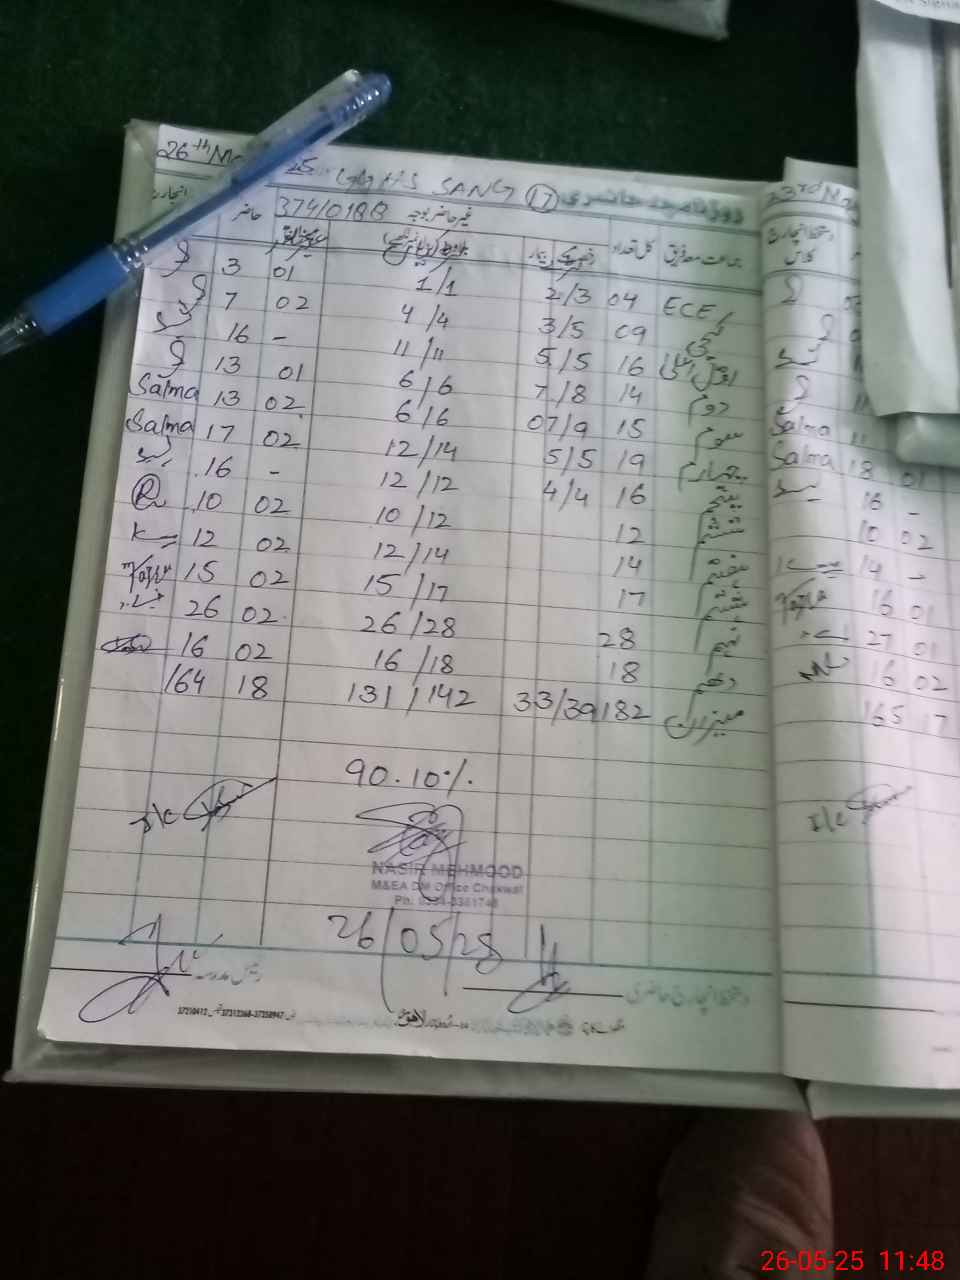 26th Ma 25 GGHS SANG 17 روزنامچہ حاضری
37410188
جماعت معہ فریق کل تعداد رخصت بیمار غیر حاضر بوجہ حاضر انچارج
ECE 04 2/3 1/1 01 3
کچی 09 3/5 4/4 02 7
اول اعلی 16 5/5 11/11 - 16
دوم 14 7/8 6/6 01 13
سوم 15 07/9 6/6 02 13 Salma
چہارم 19 5/5 12/14 02 17 Salma
پنجم 16 4/4 12/12 - 16
ششم 12 10/12 02 10
ہفتم 14 12/14 02 12
ہشتم 17 15/17 02 15
نہم 28 26/28 02 26
دہم 18 16/18 02 16
میزان 182 33/39 131/142 18 164
90.10%
I/C
NASIR MEHMOOD
M&EA DM Office Chakwal
26/05/25
دستخط انچارج حاضری
37310412 37313360-37350947
لاہور
23rd May
دستخط انچارج کلاس
Salma 11
Salma 18 01
16 -
10 02
14 -
16 01
27 01
16 02
165 17
I/C
26-05-25 11:48